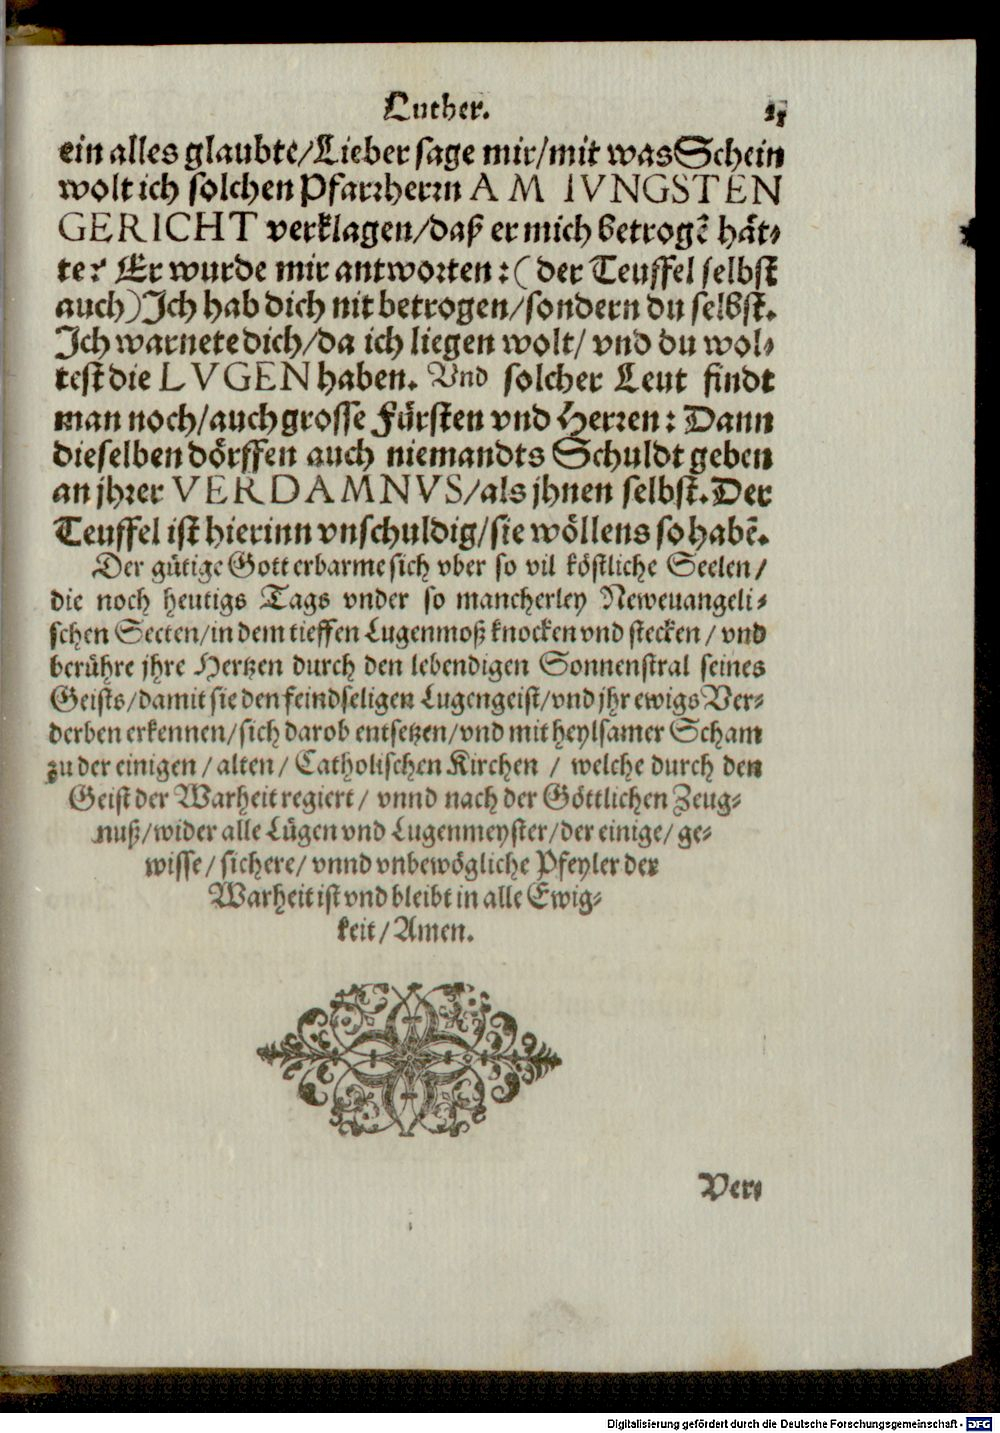 Luther.
ein alles glaubte/Lieber sage mir/mit was Schein
wolt ich solchen Pfarrherrn AM IVNGSTEN
GERICHT verklagen/daß er mich betrogẽ hät-
te? Er wurde mir antworten: (der Teuffel selbst
auch) Ich hab dich nit betrogen/sondern du selbst.
Ich warnete dich/da ich liegen wolt/ vnd du wol-
test die LVGEN haben. Vnd solcher Leut findt
man noch/auch grosse Fürsten vnd Herren: Dann
dieselben dörffen auch niemandts Schuldt geben
an jhrer VERDAMNVS/als jhnen selbst. Der
Teuffel ist hierinn vnschuldig/sie wöllens so habẽ.
Der gütige Gott erbarme sich vber so vil köstliche Seelen/
die noch heutigs Tags vnder so mancherley Neweuangeli-
schen Secten/in dem tieffen Lugenmoß knocken vnd stecken/ vnd
berühre jhre Hertzen durch den lebendigen Sonnenstral seines
Geists/damit sie den feindseligen Lugengeist/vnd jhr ewigs Ver-
derben erkennen/sich darob entsetzen/vnd mit heylsamer Scham
zu der einigen/ alten/ Catholischen Kirchen / welche durch den
Geist der Warheit regiert/ vnnd nach der Göttlichen Zeug-
nuß/wider alle Lügen vnd Lugenmeyster/der einige/ ge-
wisse/ sichere/ vnnd vnbewögliche Pfeyler der
Warheit ist vnd bleibt in alle Ewig-
keit/ Amen.
Ver-
Digitalisierung gefördert durch die Deutsche Forschungsgemeinschaft - DFG